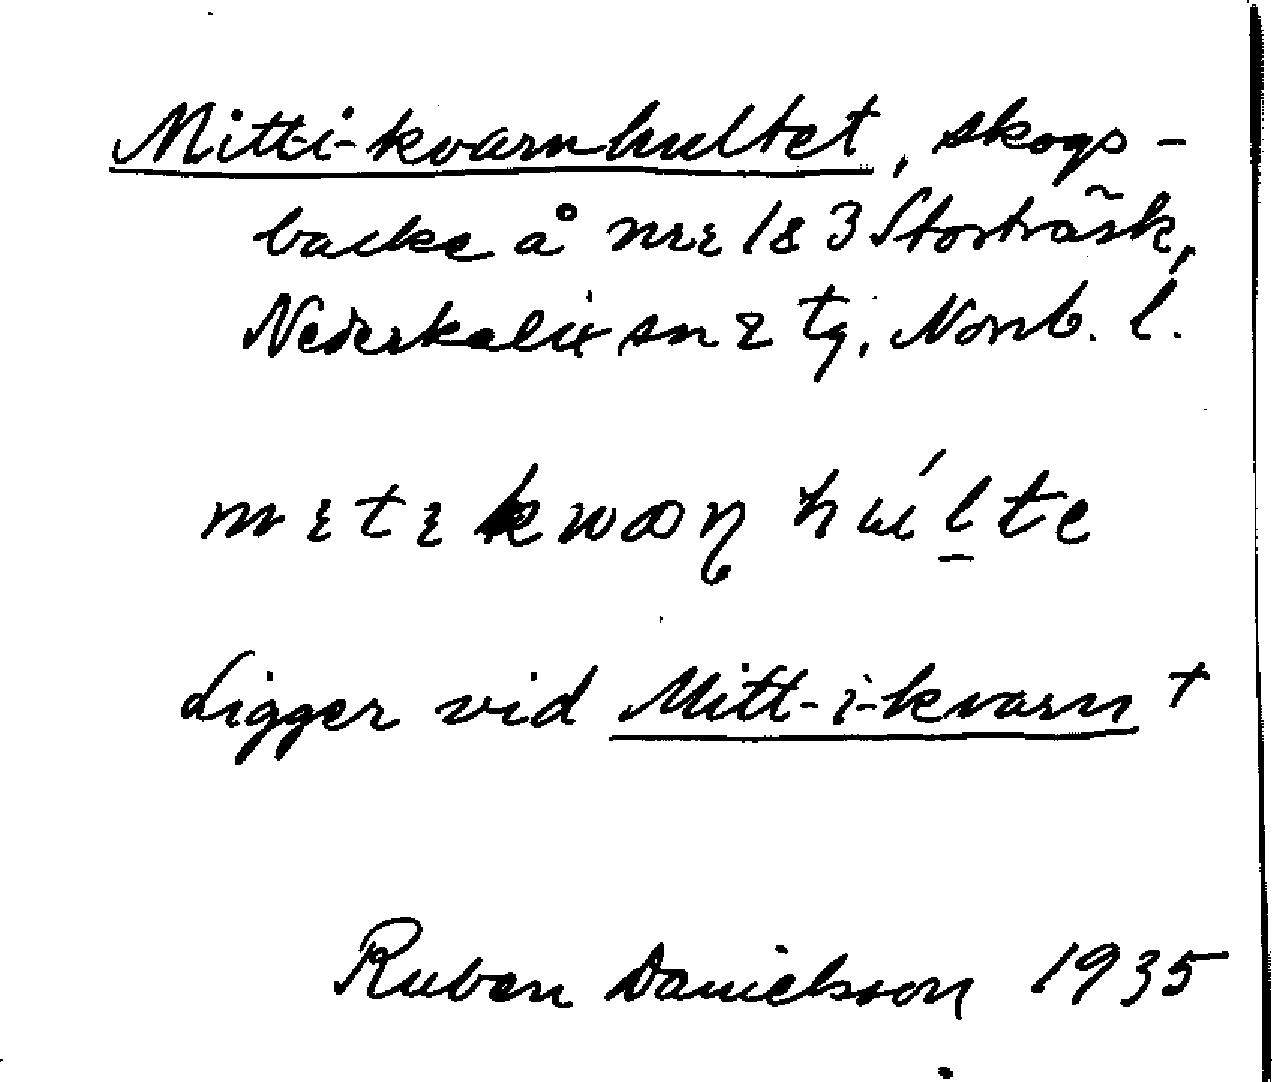 Mitt-i-kvarnhultet, skogs-
backe å nrr 1 & 3 Storträsk,
Nederkalix sn & tg, Norrb. l.
Ligger vid Mitt-i-kvarn +
Ruben Danielsson 1935